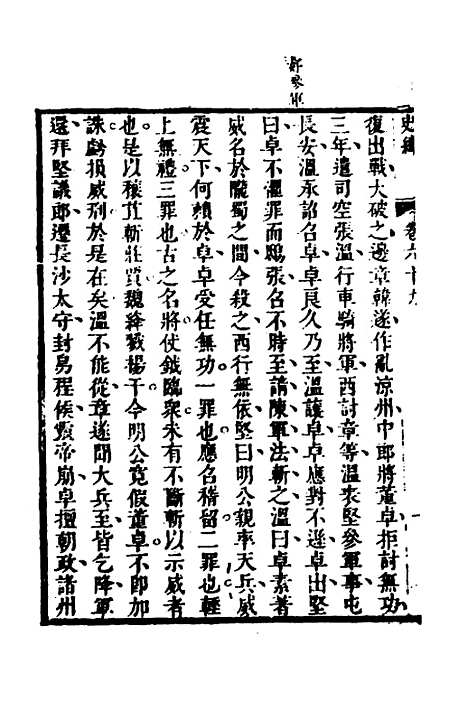 許參軍
史緯 卷六十九
復出戰大破之邊章韓遂作亂涼州中郎將董卓拒討無功
三年遣司空張溫行車騎將軍西討章等溫表堅參軍事屯
長安溫承詔召卓卓良久乃至溫讓卓卓應對不遜卓出堅
曰卓不懼罪而鴟張召不時至請陳軍法斬之溫曰卓素著
威名於隴蜀之間今殺之西行無依堅曰明公親率天兵威
震天下何賴於卓卓受任無功一罪也應召稽留二罪也輕
上無禮三罪也古之名將仗鉞臨衆未有不斷斬以示威者
也是以穰苴斬莊賈魏絳戮楊干今明公竟假董卓不即加
誅虧損威刑於是在矣溫不能從章遂聞大兵至皆乞降軍
還拜堅議郎遷長沙太守封烏程侯靈帝崩卓擅朝政諸州